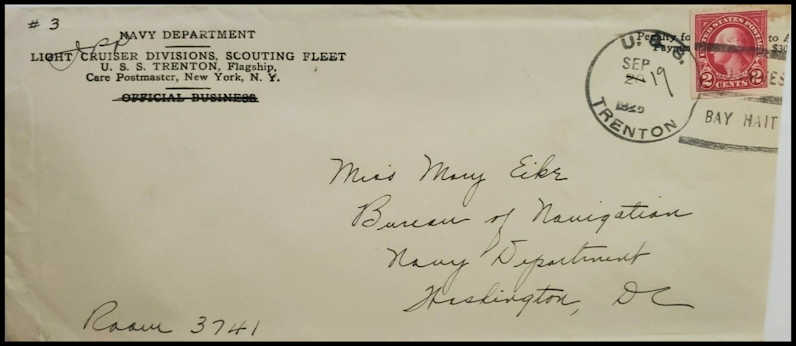 # 3
NAVY DEPARTMENT
LIGHT CRUISER DIVISIONS, SCOUTING FLEET
U. S. S. TRENTON, Flagship,
Care Postmaster, New York, N. Y.
OFFICIAL BUSINESS
Penalty fo
to A
Payme
$30
U. S. S.
SEP
20 19
TRENTON
UNITED STATES POSTAGE
2 CENTS 2
ES
BAY HAIT
Miss Mary Eike
Bureau of Navigation
Navy Department
Washington, DC
Room 3741